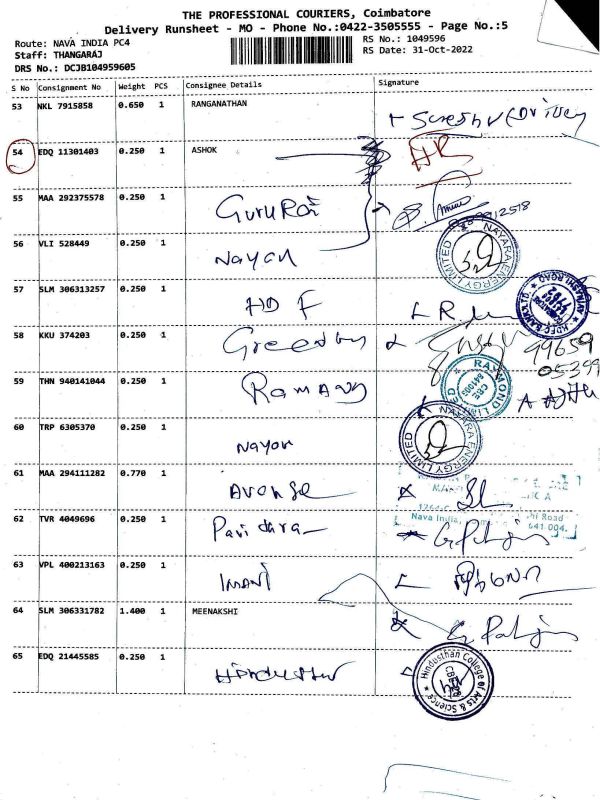 THE PROFESSIONAL COURIERS, Coimbatore
Delivery Runsheet - MO - Phone No.:0422-3505555 - Page No.:5
Route: NAVA INDIA PC4 RS No.: 1049596
Staff: THANGARAJ RS Date: 31-Oct-2022
DRS No.: DCJB104959605
S No Consignment No Weight PCS Consignee Details Signature
53 NKL 7915858 0.650 1 RANGANATHAN
54 EDQ 11301403 0.250 1 ASHOK
55 MAA 292375578 0.250 1
56 VLI 528449 0.250 1 Nayan
NAYARA ENERGY LIMITED
57 SLM 306313257 0.250 1 HDF
HDFC BANK LTD.
58 KKU 374203 0.250 1
99659
59 THN 940141044 0.250 1
RAYMOND LIMITED
60 TRP 6305370 0.250 1 Nayon
NAYARA ENERGY LIMITED
61 MAA 294111282 0.770 1
62 TVR 4049696 0.250 1
Nava India, Road
641 004.
63 VPL 400213163 0.250 1
64 SLM 306331782 1.400 1 MEENAKSHI
65 EDQ 21445585 0.250 1
Hindusthan College of Arts & Science